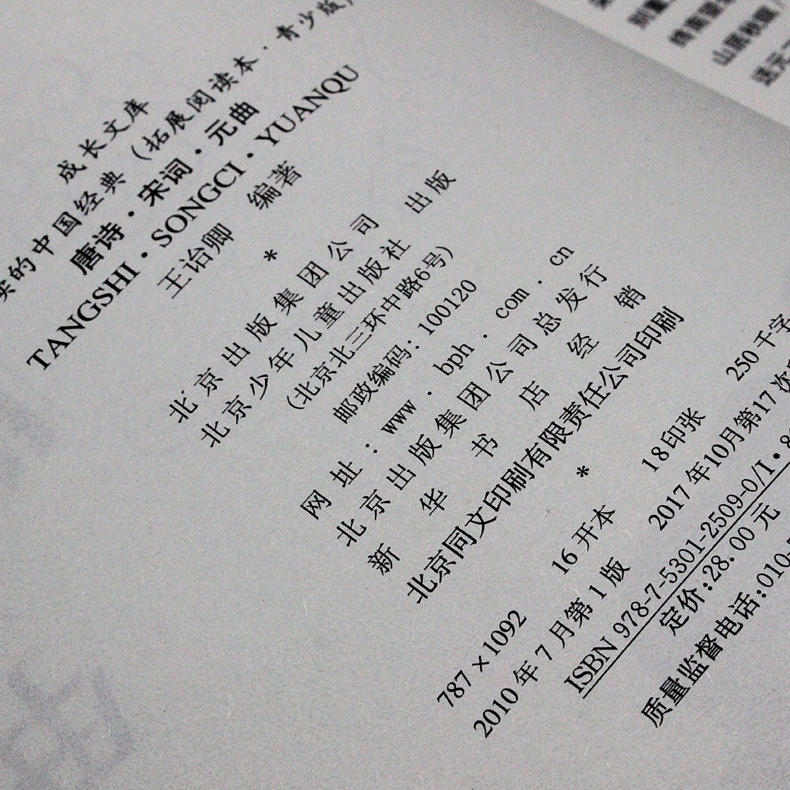 成长文库
的中国经典(拓展阅读本·青少版)
唐诗·宋词·元曲
TANGSHI·SONGCI·YUANQU
王诒卿 编著
*
北京出版集团公司 出版
北京少年儿童出版社
(北京北三环中路6号)
邮政编码:100120
网址:www.bph.com.cn
北京出版集团公司总发行
新华书店经销
北京同文印刷有限责任公司印刷
*
787×1092 16开本 18印张 250千字
2010年7月第1版 2017年10月第17次
ISBN 978-7-5301-2509-0/I·
定价:28.00元
质量监督电话:010-